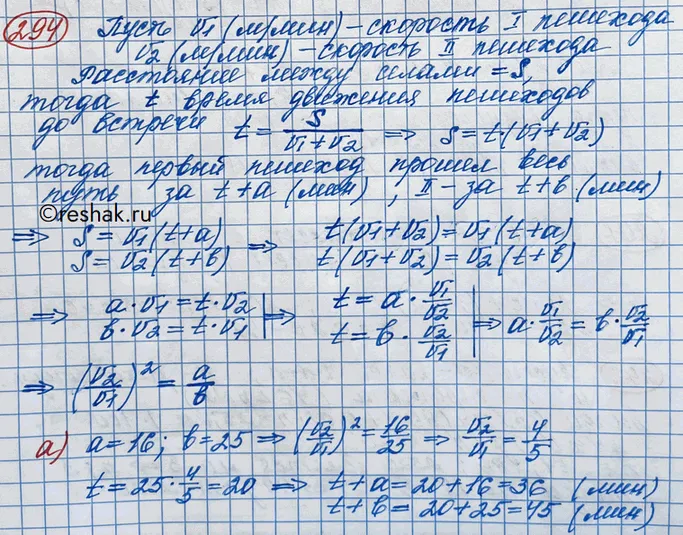 294 Пусть v₁ (м/мин) – скорость I пешехода
v₂ (м/мин) – скорость II пешехода
Расстояние между селами = S,
тогда t время движения пешеходов
до встречи t = S/(v₁+v₂) ⇒ S=t·(v₁+v₂)
тогда первый пешеход прошел весь
путь за t+a (мин), II – за t+b (мин)
©reshak.ru
⇒ S=v₁(t+a) ⇒ t(v₁+v₂)=v₁(t+a)
S=v₂(t+b) t(v₁+v₂)=v₂(t+b)
⇒ a·v₁=t·v₂ | ⇒ t=a·v₁/v₂ | ⇒ a·v₁/v₂ = b·v₂/v₁
b·v₂=t·v₁ | t=b·v₂/v₁ |
⇒ (v₂/v₁)² = a/b
а) a=16; b=25 ⇒ (v₂/v₁)² = 16/25 ⇒ v₂/v₁ = 4/5
t=25·4/5=20 ⇒ t+a=20+16=36 (мин)
t+b=20+25=45 (мин)